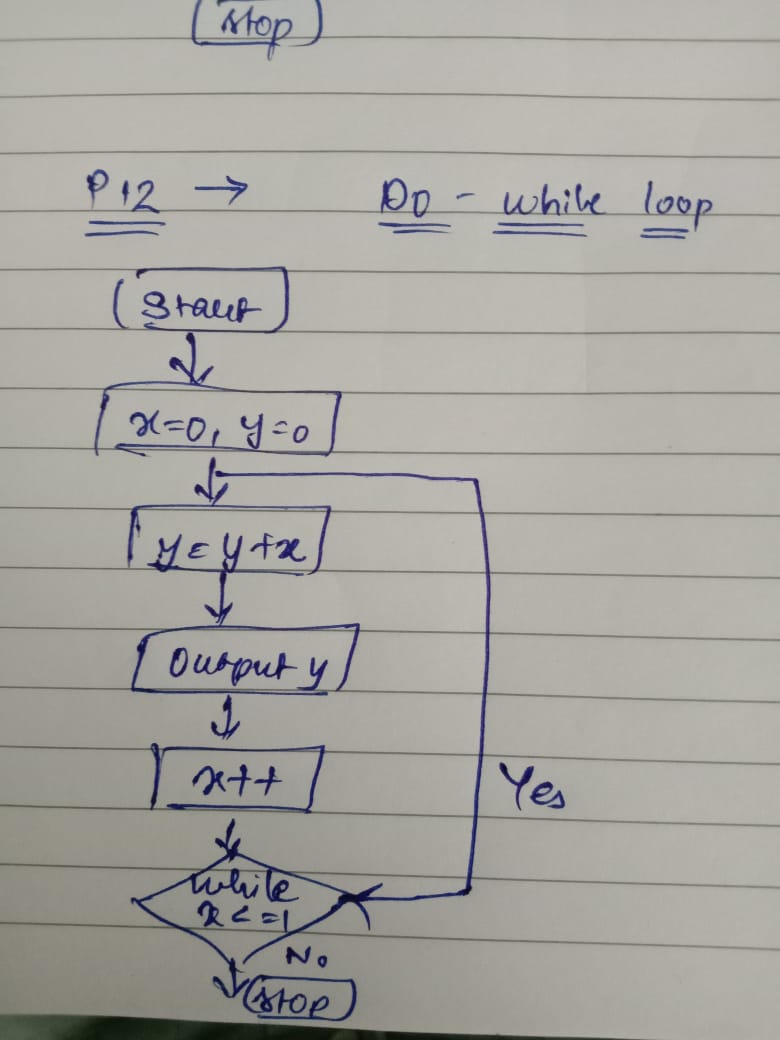 stop
P12 → Do - while loop
Start
x=0, y=0
y = y+x
Output y
x++
Yes
while
x<=1
No
stop